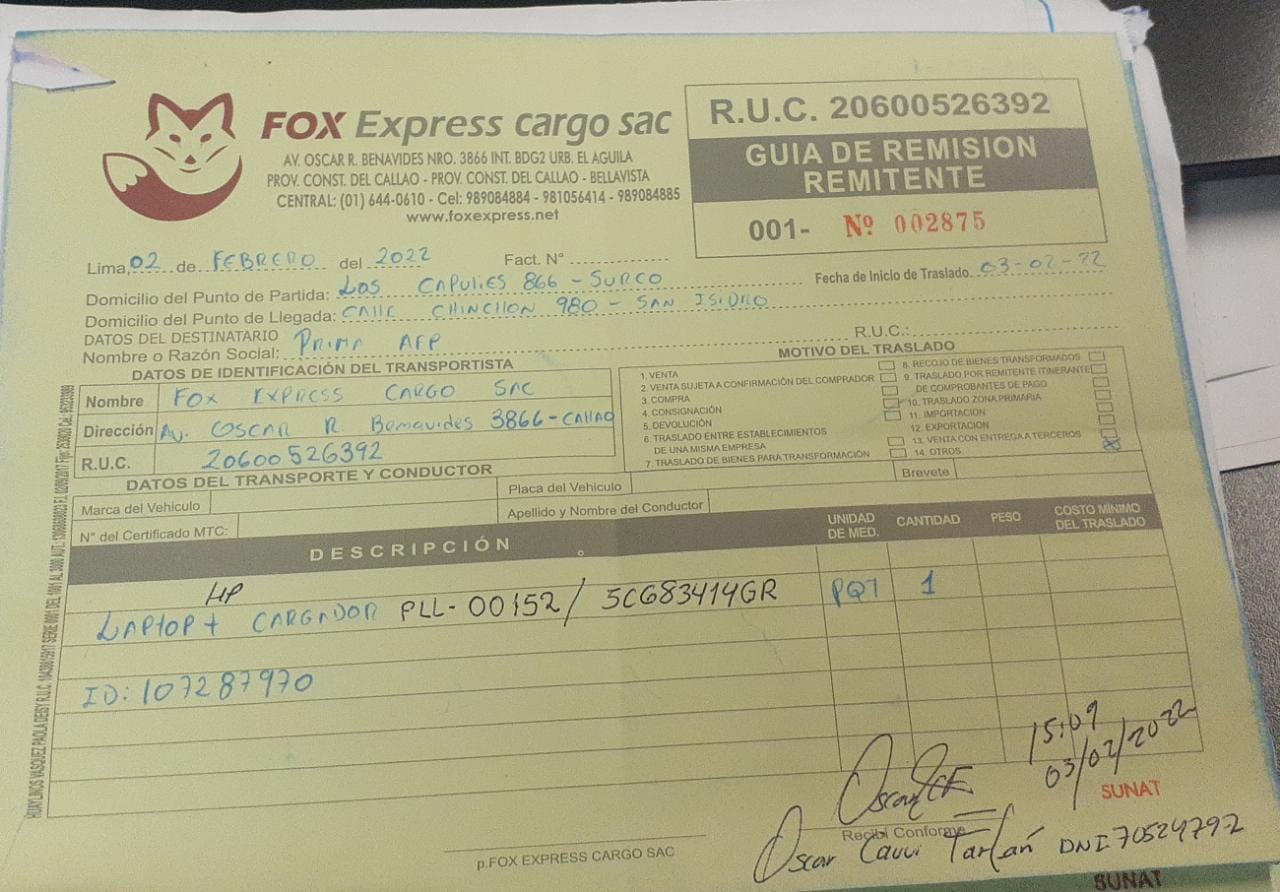 FOX Express cargo sac
AV. OSCAR R. BENAVIDES NRO. 3866 INT. BDG2 URB. EL AGUILA
PROV. CONST. DEL CALLAO - PROV. CONST. DEL CALLAO - BELLAVISTA
CENTRAL: (01) 644-0610 - Cel: 989084884 - 981056414 - 989084885
www.foxexpress.net
R.U.C. 20600526392
GUIA DE REMISION
REMITENTE
001- Nº 002875
Lima, 02 de FEBRERO del 2022 Fact. N°
Fecha de Inicio de Traslado. 03-02-22
Domicilio del Punto de Partida: LOS CAPULIES 866 - SURCO
Domicilio del Punto de Llegada: CALLE CHINCHON 980 - SAN ISIDRO
DATOS DEL DESTINATARIO
Nombre o Razón Social: PRIMA AFP R.U.C.:
DATOS DE IDENTIFICACIÓN DEL TRANSPORTISTA
Nombre FOX EXPRESS CARGO SAC
Dirección Av. OSCAR R. Bemavides 3866 - CALLAO
R.U.C. 20600526392
MOTIVO DEL TRASLADO
1. VENTA
2. VENTA SUJETA A CONFIRMACIÓN DEL COMPRADOR
3. COMPRA
4. CONSIGNACIÓN
5. DEVOLUCIÓN
6. TRASLADO ENTRE ESTABLECIMIENTOS
DE UNA MISMA EMPRESA
7. TRASLADO DE BIENES PARA TRANSFORMACIÓN
8. RECOJO DE BIENES TRANSFORMADOS
9. TRASLADO POR REMITENTE ITINERANTE
DE COMPROBANTES DE PAGO
10. TRASLADO ZONA PRIMARIA
11. IMPORTACION
12. EXPORTACION
13. VENTA CON ENTREGA A TERCEROS
14. OTROS
DATOS DEL TRANSPORTE Y CONDUCTOR
Marca del Vehículo Placa del Vehículo Brevete
N° del Certificado MTC: Apellido y Nombre del Conductor
DESCRIPCIÓN UNIDAD DE MED. CANTIDAD PESO COSTO MÍNIMO DEL TRASLADO
HP
LAPTOP + CARGADOR PLL-00152 / 5CG83414GR PQT 1
ID: 107287970
15:09
03/02/2022
SUNAT
Recibí Conforme
p.FOX EXPRESS CARGO SAC
Oscar Cauri DNI 70524792
SUNAT